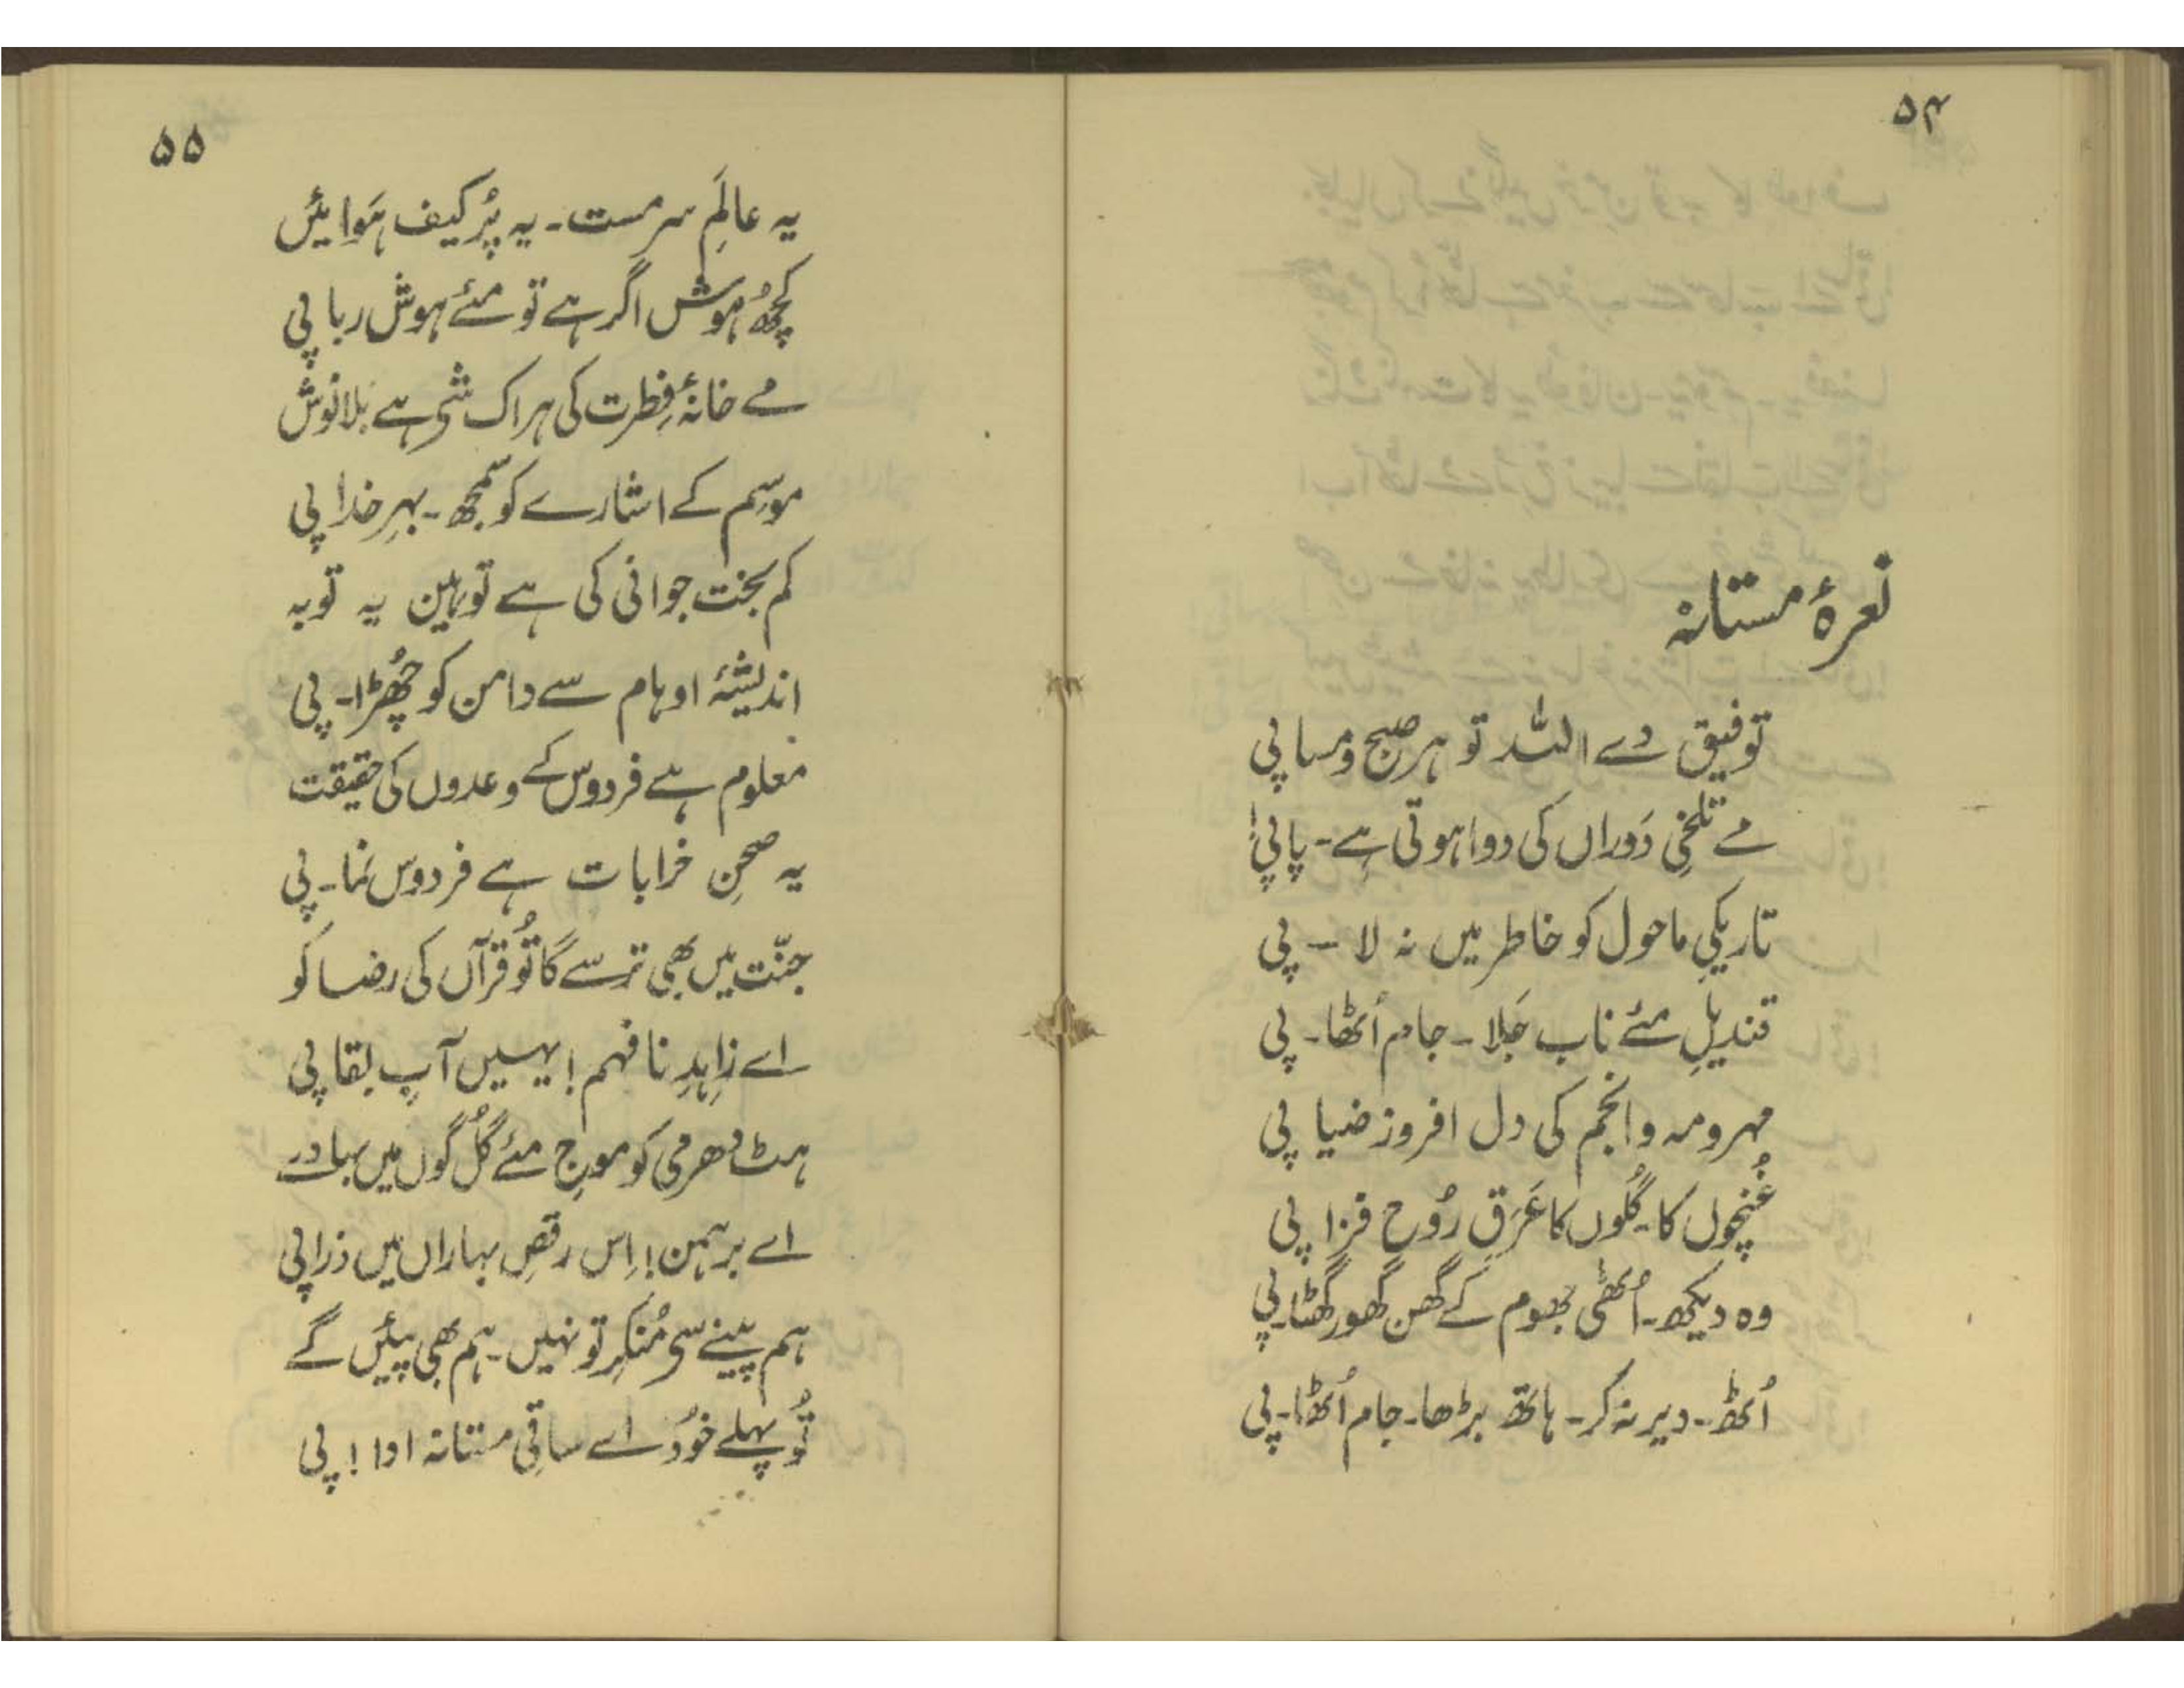 ۵۴
نعرۂ مستانہ
توفیق دے اللہ تو ہر صبح و مسا پی
مے تلخیِ دَوراں کی دوا ہوتی ہے۔ پا پی!
تاریکیِ ماحول کو خاطر میں نہ لا – پی
قندیلِ مئے ناب جَلا۔ جام اُٹھا۔ پی
مہر و مہ و انجم کی دل افروز ضیا پی
غُنچوں کا۔ گلُوں کا عَرَقِ رُوح فزا پی
وہ دیکھ۔ اُٹھی جھوم کے گھن گھور گھٹا۔ پی
اُٹھ۔ دیر نہ کر۔ ہاتھ بڑھا۔ جام اُٹھا۔ پی
۵۵
یہ عالَمِ سرمست۔ یہ پُر کیف ہَوائیں
کچھُ ہوش اگر ہے تو مئے ہوش ربا پی
مے خانۂ فِطرت کی ہر اک شی ہے بلا نُوش
موسِم کے اشارے کو سمجھ۔ بہرِ خدا پی
کم بخت جوانی کی ہے توہین یہ توبہ
اندیشۂ اوہام سے دامن کو چھُڑا۔ پی
معلوم ہے فردوس کے وعدوں کی حقیقت
یہ صحنِ خرابات ہے فردوس نُما۔ پی
جنّت میں بھی ترسے گا تُو قرآں کی رضا کو
اے زاہِدِ نا فہم! یہیں آبِ بقا پی
ہٹ دھرمی کو موجِ مئے گُل گوں میں بہا دے
اے برہمن! اِس رقصِ بہاراں میں ذرا پی
ہم پینے سی مُنکِر تو نہیں۔ ہم بھی پیئں گے
تُو پہلے خُود اے ساقیِ مستانہ ادا! پی